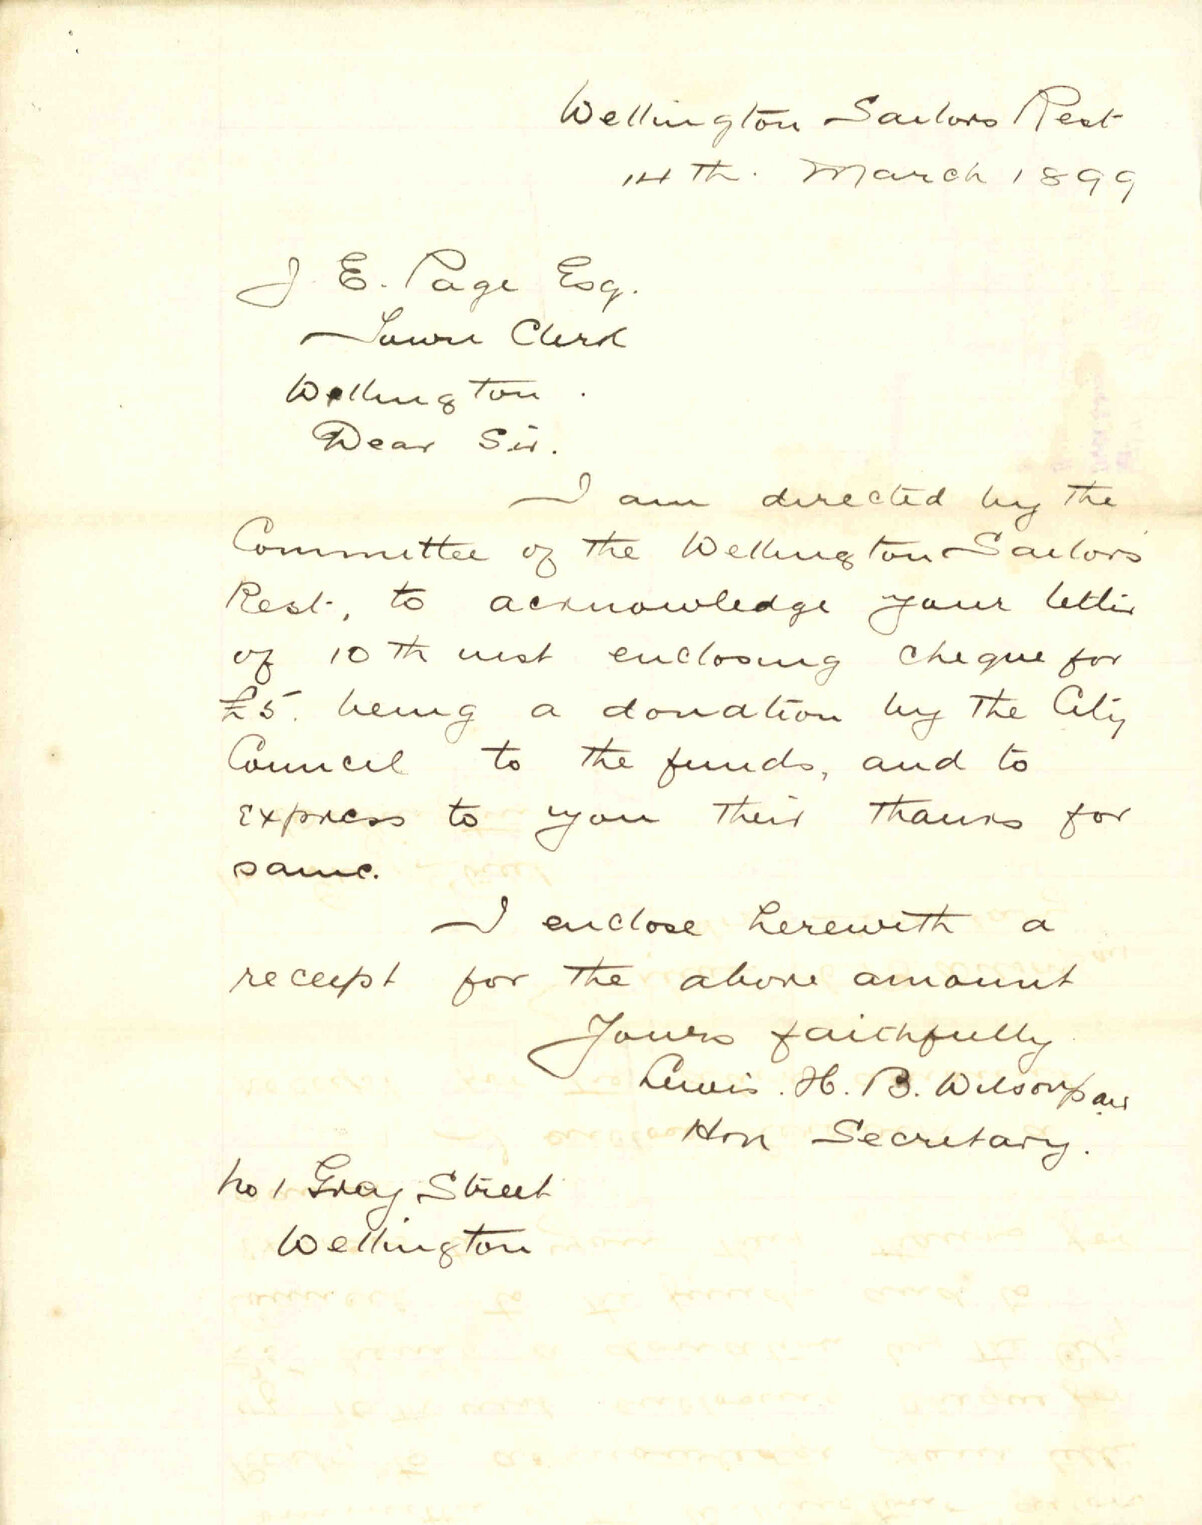 Wellington Sailors Rest
14th. March 1899
J. E. Page Esq.
Town Clerk
Wellington.
Dear Sir.
I am directed by the
Committee of the Wellington Sailors
Rest, to acknowledge your letter
of 10th inst enclosing cheque for
£5. being a donation by the City
Council to the funds, and to
express to you their thanks for
same.
I enclose herewith a
receipt for the above amount
Yours faithfully
Lewis. H. B. Wilson
Hon Secretary.
No 1 Gray Street
Wellington